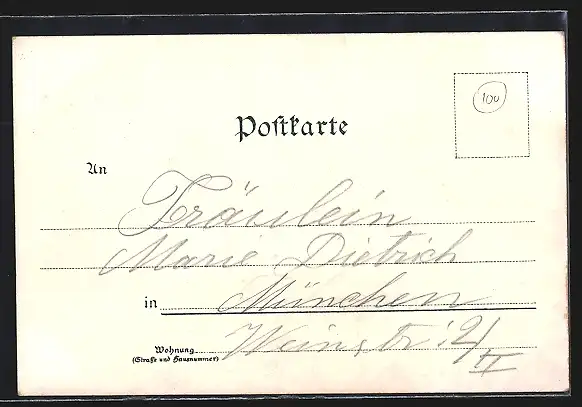 100
Postkarte
An
Fräulein
Marie Dietrich
in München
Wohnung Weinstr. 2/II
(Straße und Hausnummer)